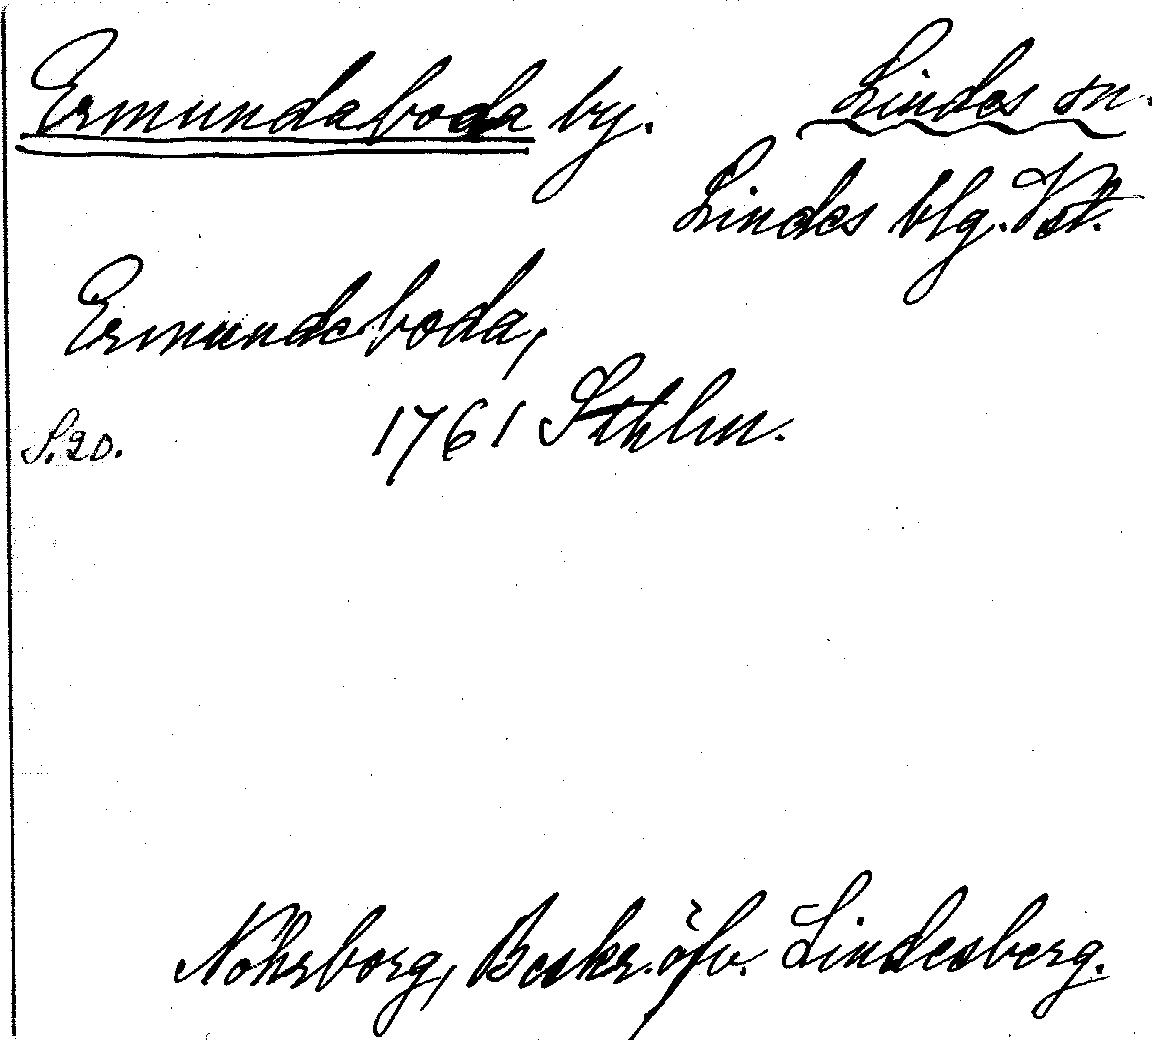 Ermundaboda by. Lindes sn.
Lindes blg. Vstl.
Ermundeboda,
S. 20. 1761 Sthlm.
Nohrborg, Beskr. öfv. Lindesberg.